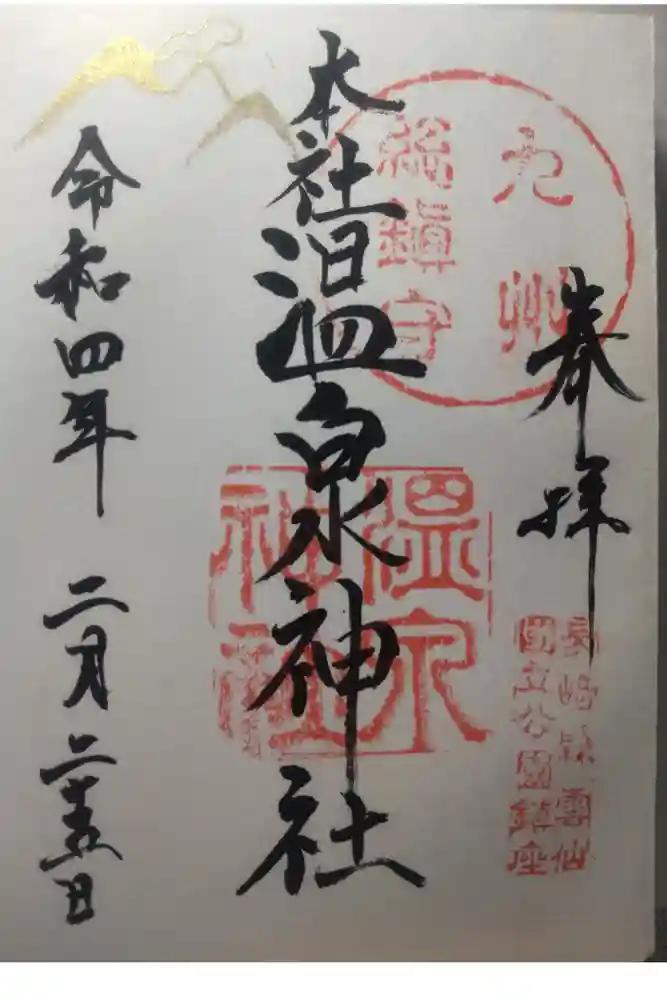 奉拝
九州
総鎮守
長崎縣雲仙
國立公園鎮座
本社温泉神社
温泉
神社
令和四年 二月二十五日